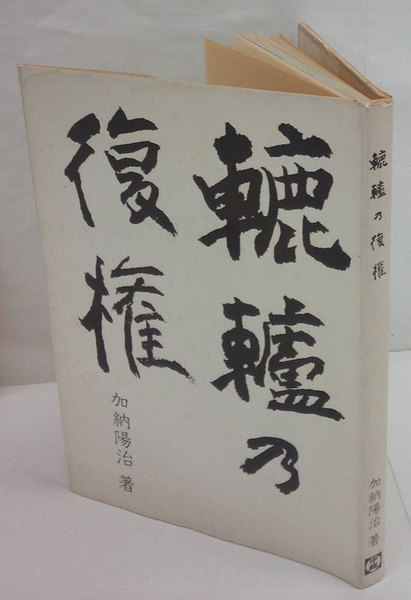 轆轤乃
復権
加納陽治 著
轆轤乃復権
加納陽治 著